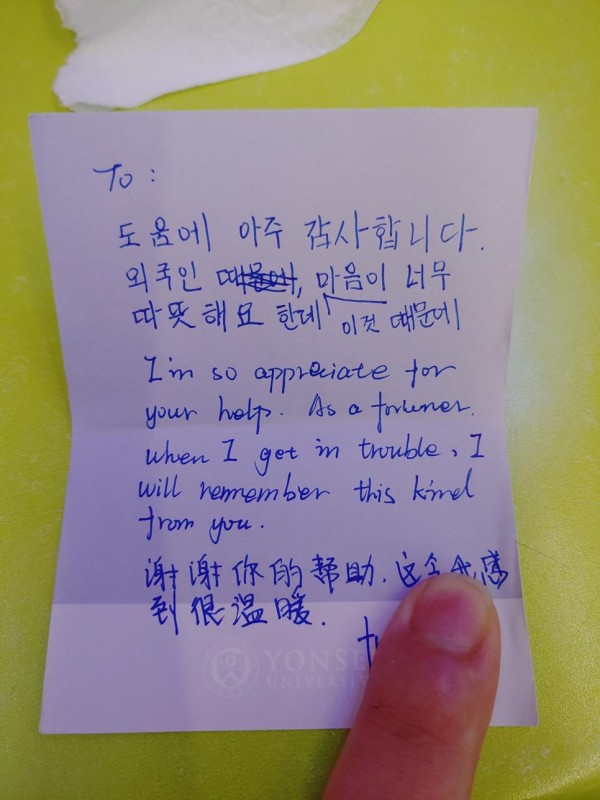 To :
도움에 아주 감사합니다.
외국인 때문에, 마음이 너무
따뜻해요 한데 이것 때문에
I'm so appreciate for
your help. As a foriuner.
when I get in trouble, I
will remember this kind
from you.
谢谢你的帮助. 这令我感
到很温暖.
YONSE
UNIVERSI